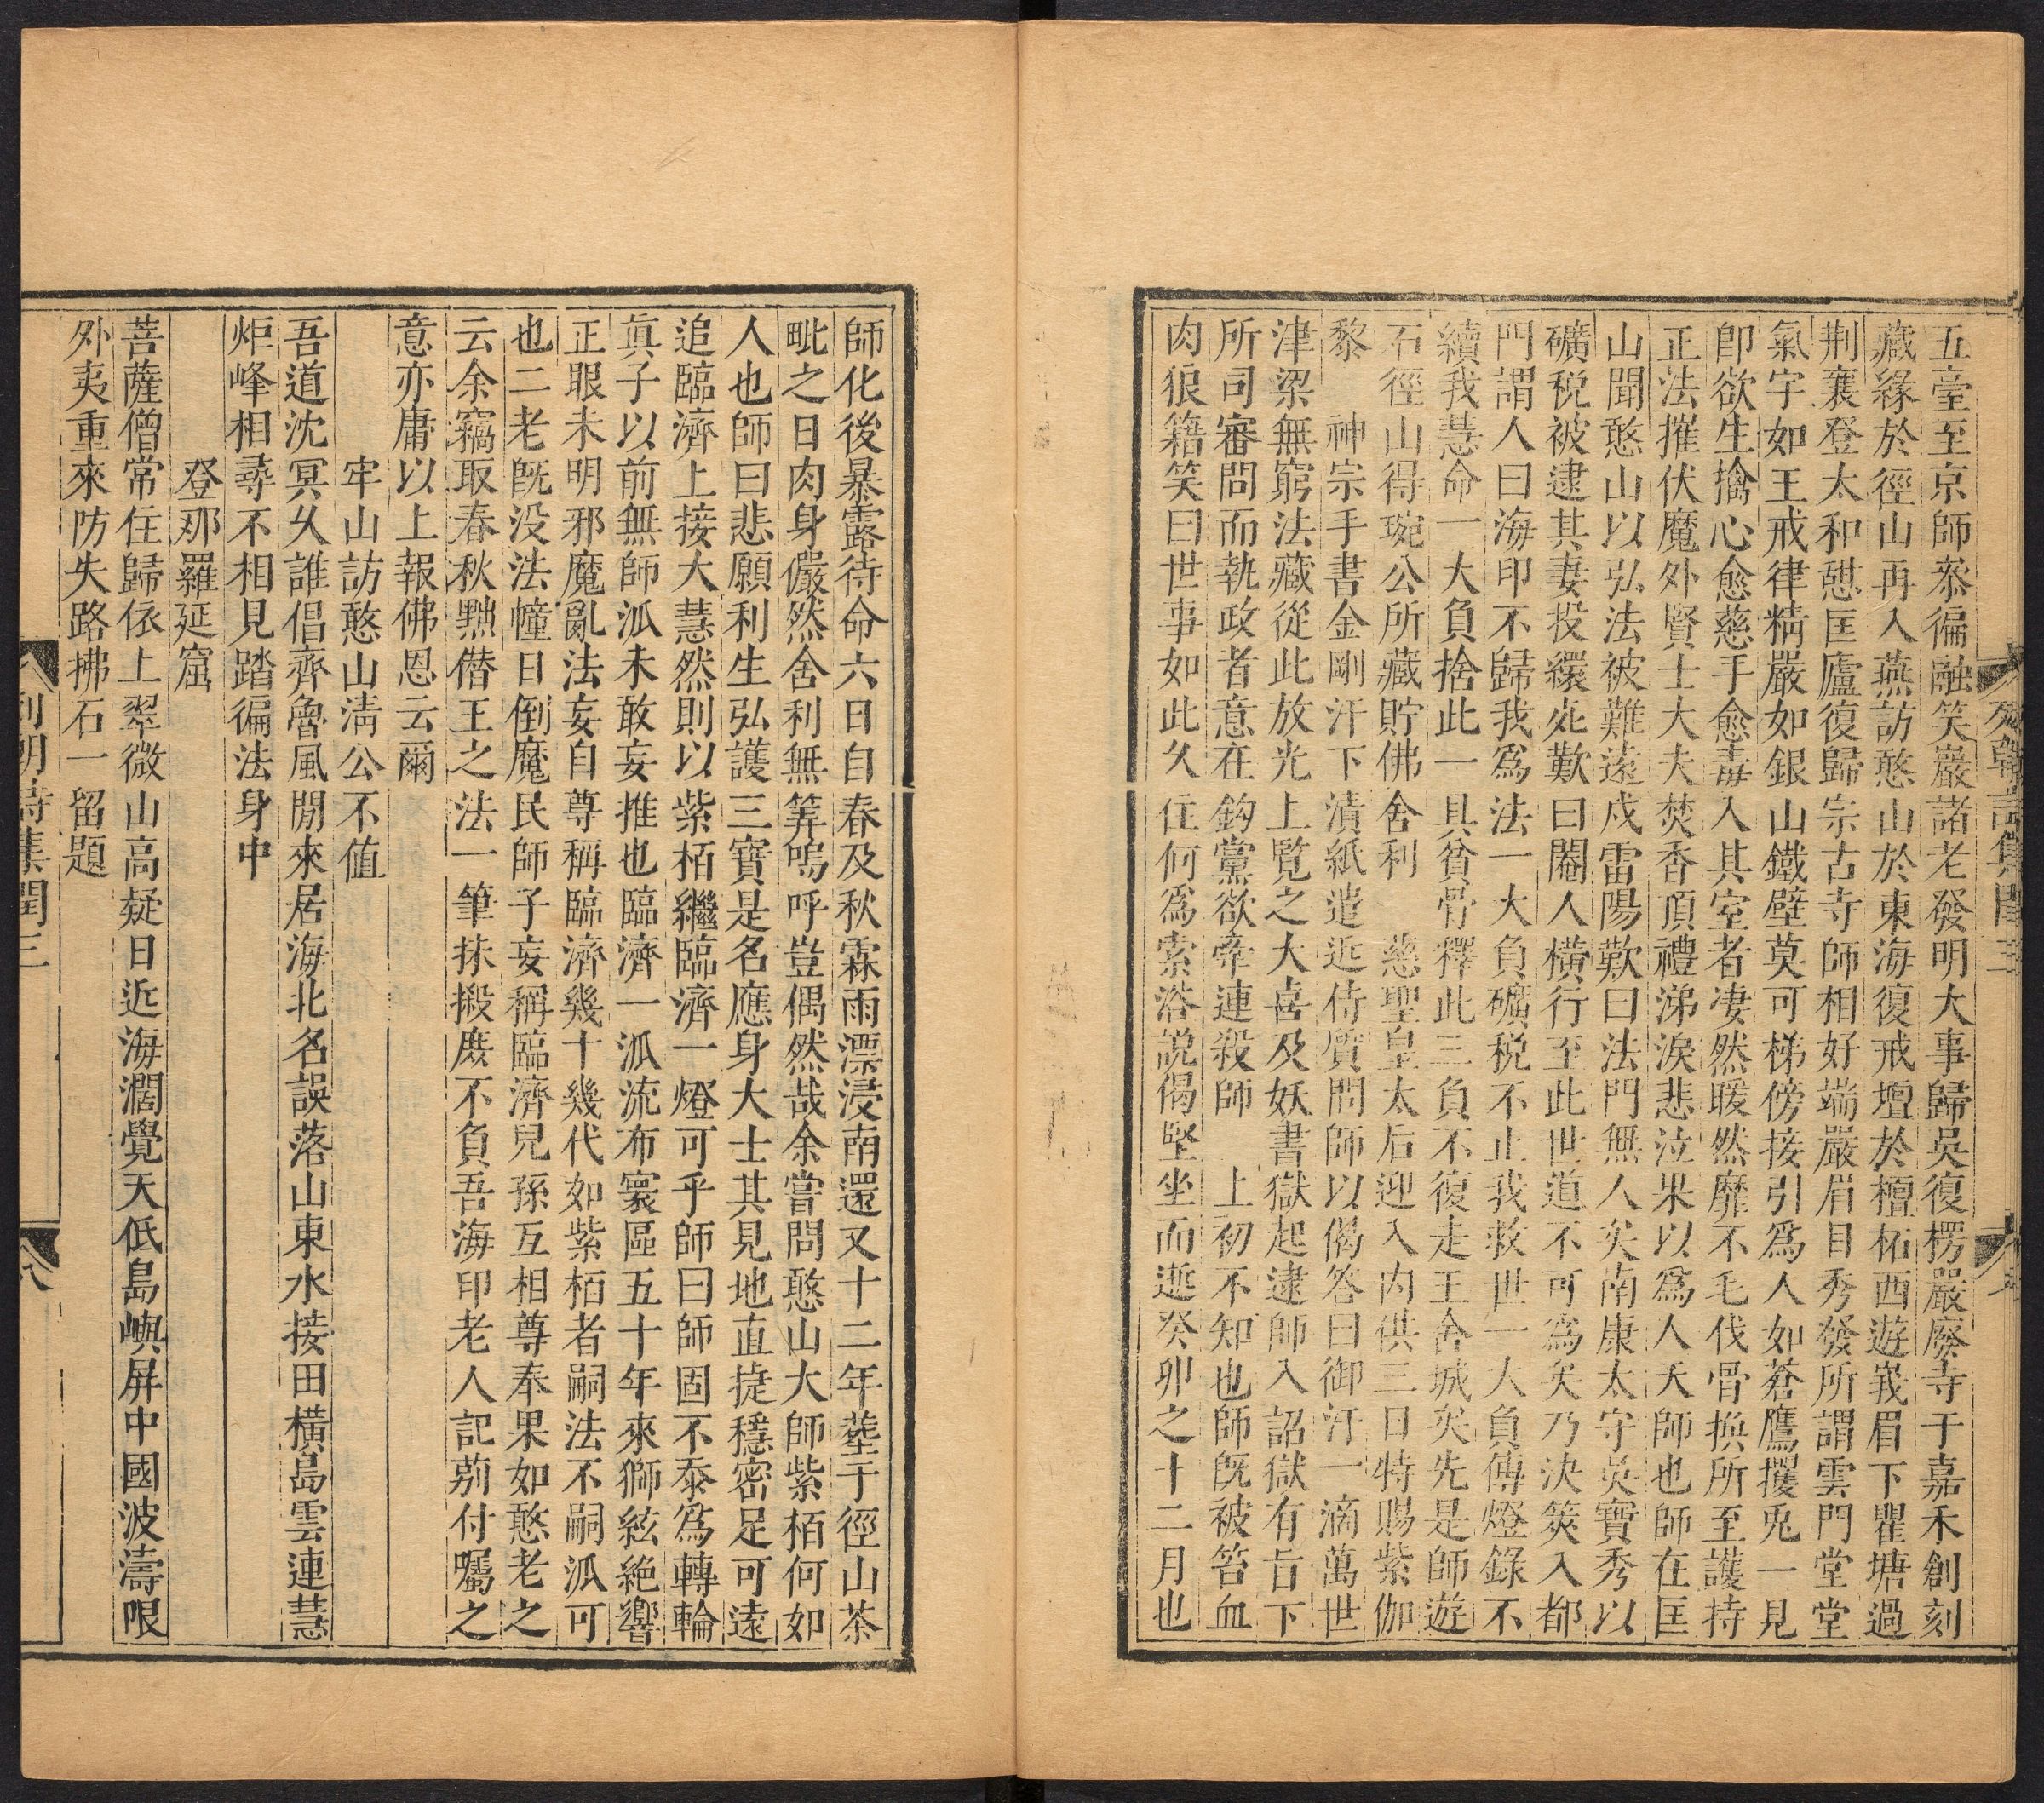 五臺至京師叅徧融笑巖諸老發明大事歸吳復楞嚴廢寺于嘉禾創刻
藏緣於徑山再入燕訪憨山於東海復戒壇於檀柘西遊峩眉下瞿塘過
荆襄登太和憇匡廬復歸宗古寺師相好端嚴眉目秀發所謂雲門堂堂
氣宇如王戒律精嚴如銀山鐵壁莫可梯傍接引爲人如蒼鷹攫兎一見
卽欲生擒心愈慈手愈毒入其室者凄然暖然靡不毛伐骨換所至護持
正法摧伏魔外賢士大夫焚香頂禮涕淚悲泣果以爲人天師也師在匡
山聞憨山以弘法被難遠戍雷陽歎曰法門無人矣南康太守吳寶秀以
礦稅被逮其妻投繯死歎曰閹人橫行至此世道不可爲矣乃決筴入都
門謂人曰海印不歸我爲法一大負礦稅不止我救世一大負傳燈錄不
續我慧命一大負捨此一具貧骨釋此三負不復走王舍城矣先是師遊
石徑山得琬公所藏貯佛舍利　慈聖皇太后迎入内供三日特賜紫伽
黎　神宗手書金剛汗下漬紙遣近侍質問師以偈答曰御汗一滴萬世
津梁無窮法藏從此放光上覽之大喜及妖書獄起逮師入詔獄有旨下
所司審問而執政者意在鈎黨欲牽連殺師　上初不知也師旣被笞血
肉狼籍笑曰世事如此久住何爲索浴說偈堅坐而逝癸卯之十二月也
師化後暴露待命六日自春及秋霖雨漂浸南還又十二年塟于徑山茶
毗之日肉身儼然舍利無筭嗚呼豈偶然哉余嘗問憨山大師紫栢何如
人也師曰悲願利生弘護三寶是名應身大士其見地直捷穩密足可遠
追臨濟上接大慧然則以紫栢繼臨濟一燈可乎師曰師固不忝爲轉輪
眞子以前無師派未敢妄推也臨濟一派流布寰區五十年來獅絃絶響
正眼未明邪魔亂法妄自尊稱臨濟幾十幾代如紫栢者嗣法不嗣派可
也二老旣没法幢日倒魔民師子妄稱臨濟兒孫互相尊奉果如憨老之
云余竊取春秋黜僭王之法一筆抹搬庶不負吾海印老人記莂付囑之
意亦庸以上報佛恩云爾
牢山訪憨山淸公不值
吾道沈冥久誰倡齊魯風閒來居海北名誤落山東水接田橫島雲連慧
炬峰相尋不相見踏徧法身中
登那羅延窟
菩薩僧常住歸依上翠微山高疑日近海濶覺天低島嶼屏中國波濤限
外夷重來防失路拂石一留題
列朝詩集閏三
八